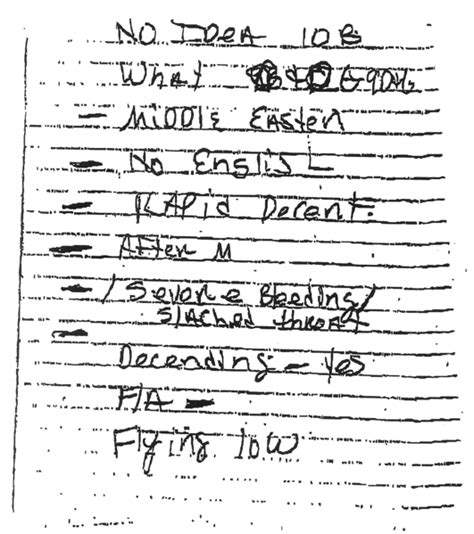 No IDeA 10B
What
- Middle Easten
- No Englis
- RAPid Decent.
- After M
- / Severe Bleeding /
Slached throat
Decending - Yes
F/A -
Flying low